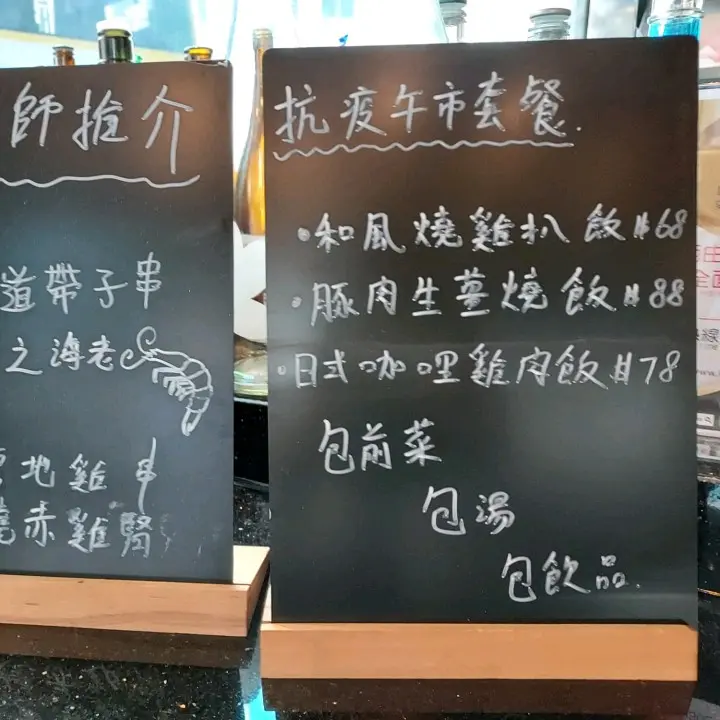 師推介
道帶子串
之海老
地雞串
赤雞腎
抗疫午市套餐.
•和風燒雞扒飯$68
•豚肉生薑燒飯$88
•日式咖哩雞肉飯$78
包前菜
包湯
包飲品.